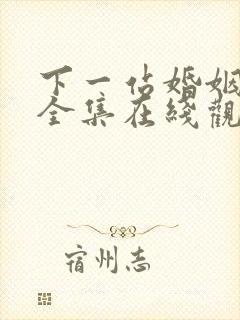 下一站婚姻
全集在綫觀
宿州志